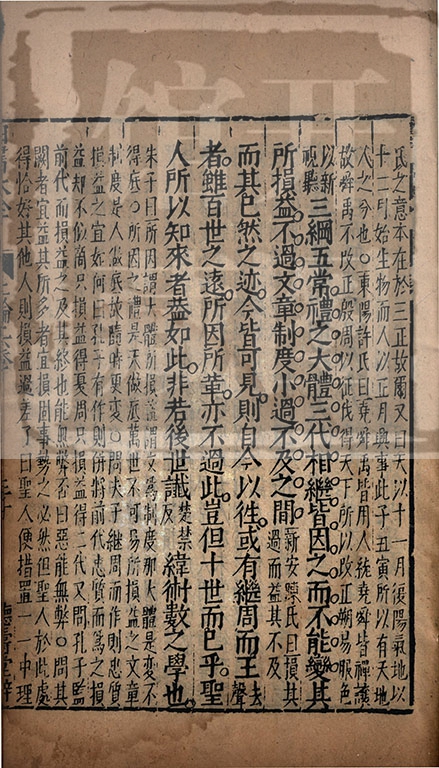 氏之意本在於三正故爾又曰天以十一月後陽氣地以
十二月始生物而人以正月興事此子丑寅所以有天地
人之分也○東陽許氏曰堯舜禹皆用人統堯舜皆禪讓
故舜禹不改正般周以征伐得天下所以改正朔易服色
以新
視聽三綱五常禮之大體三代相繼皆因之而不能變其
所損益不過文章制度小過不及之間新安陳氏曰損其
過而益其不及
而其已然之迹今皆可見則自今以往或有繼周而王去
聲
者雖百世之遠所因所革亦不過此豈但十世而已乎聖
人所以知來者蓋如此非若後世讖楚禁
反緯術數之學也
朱子曰所因謂大體所損謂文爲制度那大體是變不
得底○所因之禮是天做底萬世不可易所損益之文章
制度是人做底故隨時更變○問夫子繼周而作則忠質
損益之宜如何曰孔子有作則併將前代忠質而爲之損
益却不似商只損益得夏周只損益得二代又問孔子監
前代而損益之及其終也能無弊否曰惡能無弊○問其
闕者宜益其所多者宜損固事勢之必然但聖人於此處
得恰好其他人則損益過差了曰聖人便措置一一中理